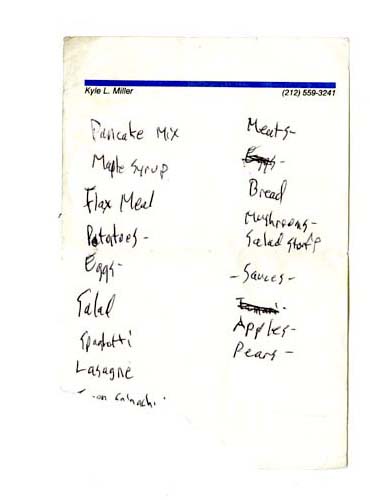 Kyle L. Miller
(212) 559-3241
Pancake Mix
Maple Syrup
Flax Meal
Potatoes -
Eggs -
Salad
Spaghetti
Lasagne
Meats -
Eggs -
Bread
Mushrooms -
Salad stuff
- Sauces -
Apples -
Pears -